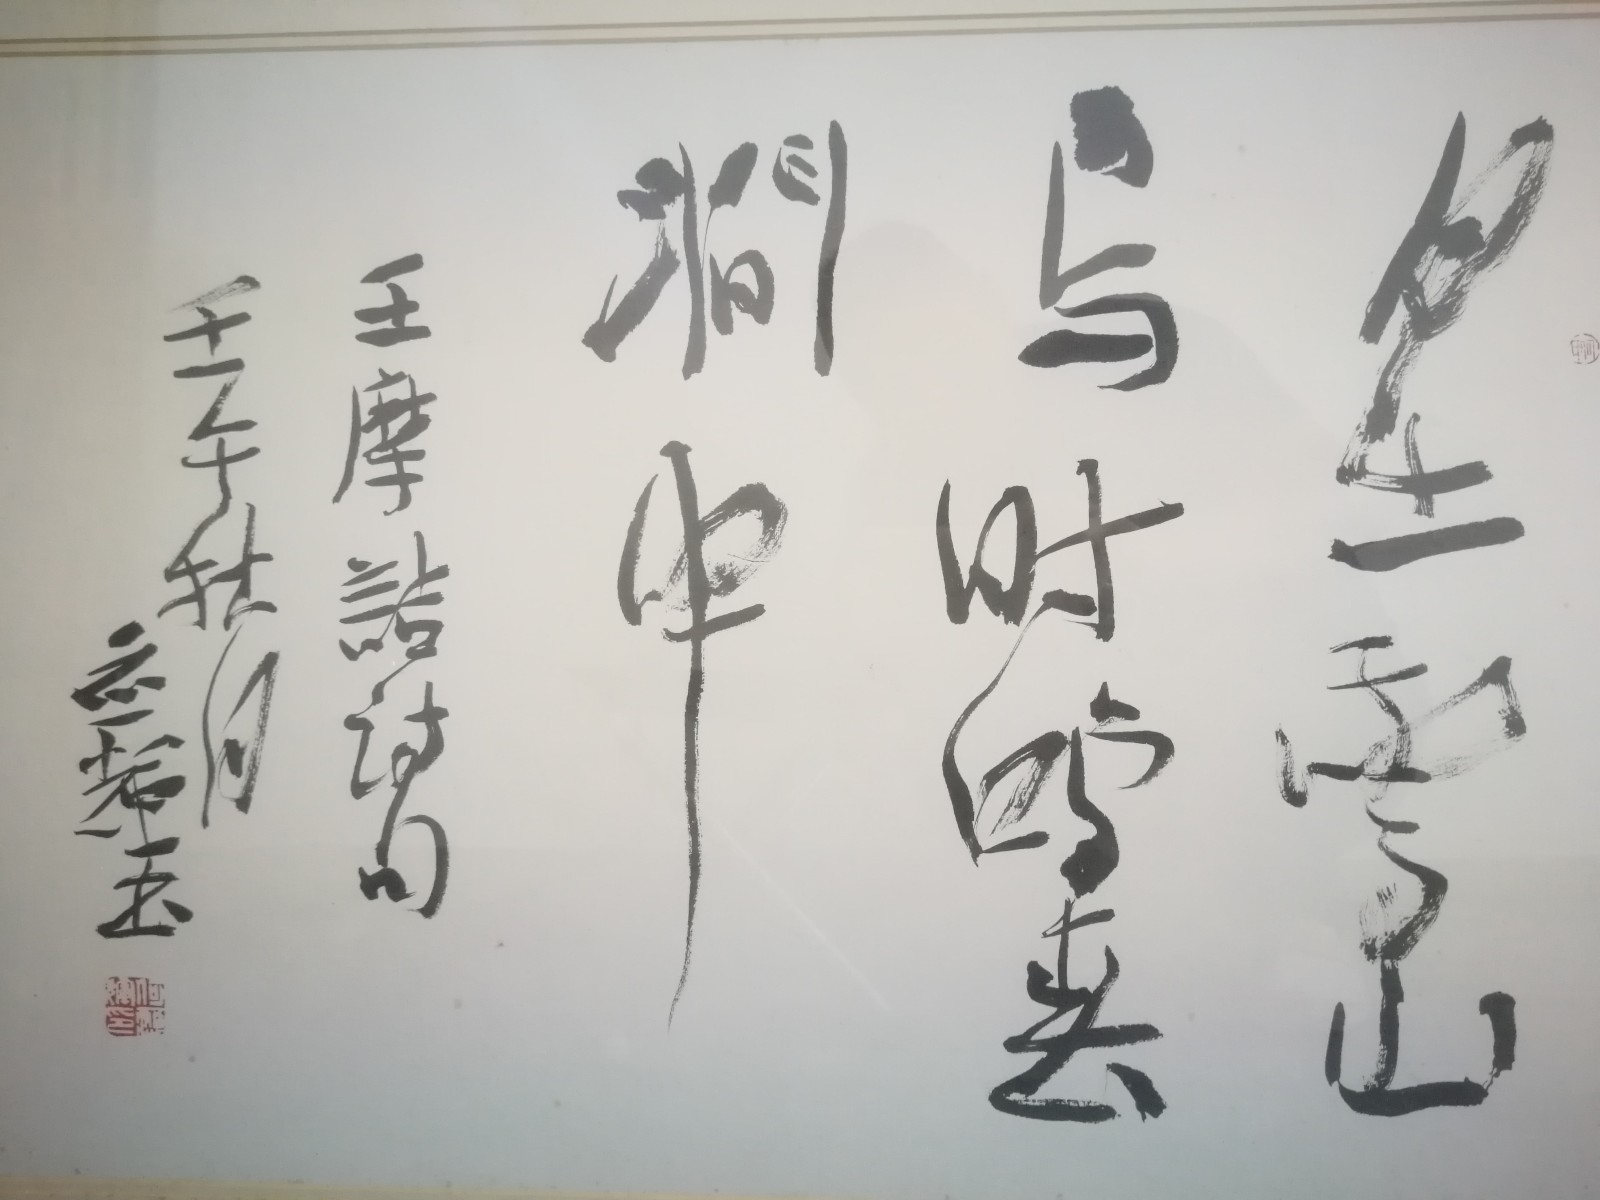 月出驚山
鸟时鸣春
澗中
王摩詰詩句
壬午秋月